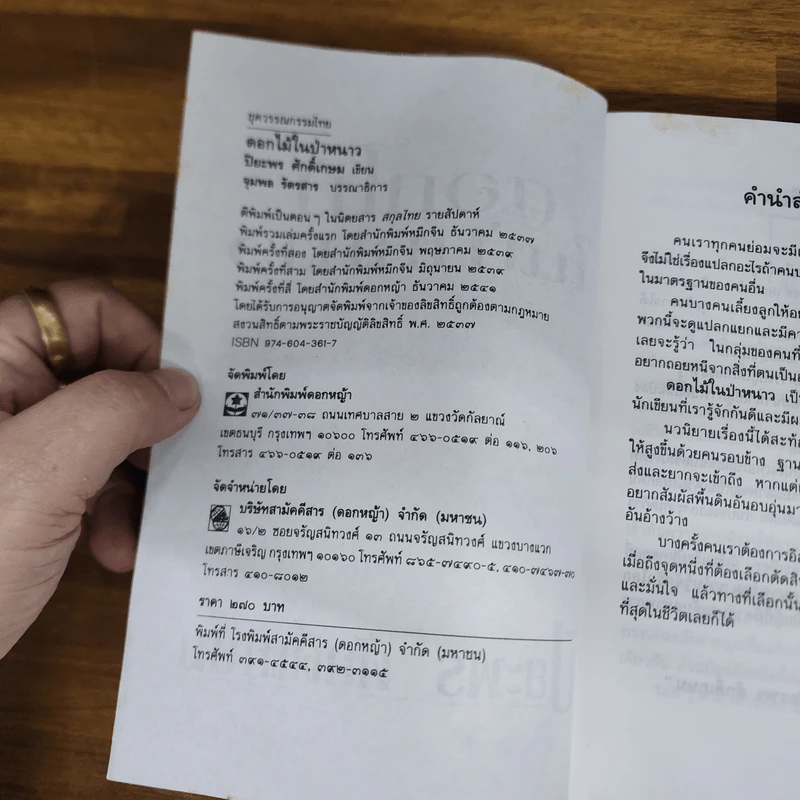 ชุดวรรณกรรมไทย
ดอกไม้ในป่าหนาว
ปิยะพร ศักดิ์เกษม เขียน
จุมพล รัตรสาร บรรณาธิการ
ตีพิมพ์เป็นตอน ๆ ในนิตยสาร สกุลไทย รายสัปดาห์
พิมพ์รวมเล่มครั้งแรก โดยสำนักพิมพ์หมึกจีน ธันวาคม ๒๕๓๗
พิมพ์ครั้งที่สอง โดยสำนักพิมพ์หมึกจีน พฤษภาคม ๒๕๓๙
พิมพ์ครั้งที่สาม โดยสำนักพิมพ์หมึกจีน มิถุนายน ๒๕๓๙
พิมพ์ครั้งที่สี่ โดยสำนักพิมพ์ดอกหญ้า ธันวาคม ๒๕๔๑
โดยได้รับการอนุญาตจัดพิมพ์จากเจ้าของลิขสิทธิ์ถูกต้องตามกฎหมาย
สงวนสิทธิ์ตามพระราชบัญญัติลิขสิทธิ์ พ.ศ. ๒๕๓๗
ISBN 974-604-361-7
จัดพิมพ์โดย
สำนักพิมพ์ดอกหญ้า
๗๑/๓๗-๓๘ ถนนเทศบาลสาย ๒ แขวงวัดกัลยาณ์
เขตธนบุรี กรุงเทพฯ ๑๐๖๐๐ โทรศัพท์ ๔๖๖-๐๕๑๙ ต่อ ๑๑๖, ๒๐๖
โทรสาร ๔๖๖-๐๕๑๙ ต่อ ๑๓๖
จัดจำหน่ายโดย
บริษัทสามัคคีสาร (ดอกหญ้า) จำกัด (มหาชน)
๑๖/๒ ซอยจรัญสนิทวงศ์ ๑๓ ถนนจรัญสนิทวงศ์ แขวงบางแวก
เขตภาษีเจริญ กรุงเทพฯ ๑๐๑๖๐ โทรศัพท์ ๘๖๕-๗๔๙๐-๕, ๔๑๐-๗๔๖๗-๗๐
โทรสาร ๔๑๐-๘๐๑๒
ราคา ๒๗๐ บาท
พิมพ์ที่ โรงพิมพ์สามัคคีสาร (ดอกหญ้า) จำกัด (มหาชน)
โทรศัพท์ ๓๙๑-๔๕๔๔, ๓๙๒-๓๑๑๕
คำนำส
คนเราทุกคนย่อมจะมี
จึงไม่ใช่เรื่องแปลกอะไรถ้าคน
ในมาตรฐานของคนอื่น
คนบางคนเลี้ยงลูกให้
พวกนี้จะดูแปลกแยกและมี
เลยจะรู้ว่า ในกลุ่มของคนที่
อยากถอยหนีจากสิ่งที่ตนเป็น
ดอกไม้ในป่าหนาว
นักเขียนที่เรารู้จักกันดีและมี
นวนิยายเรื่องนี้ได้สะท้อ
ให้สูงขึ้นด้วยคนรอบข้าง ฐาน
ส่งและยากจะเข้าถึง หากแต่
อยากสัมผัสพื้นดินอันอบอุ่น
อันอ้างว้าง
บางครั้งคนเราต้องการ
เมื่อถึงจุดหนึ่งที่ต้องเลือกตัดสิ
และมั่นใจ แล้วทางที่เลือกนั้น
ที่สุดในชีวิตเลยก็ได้